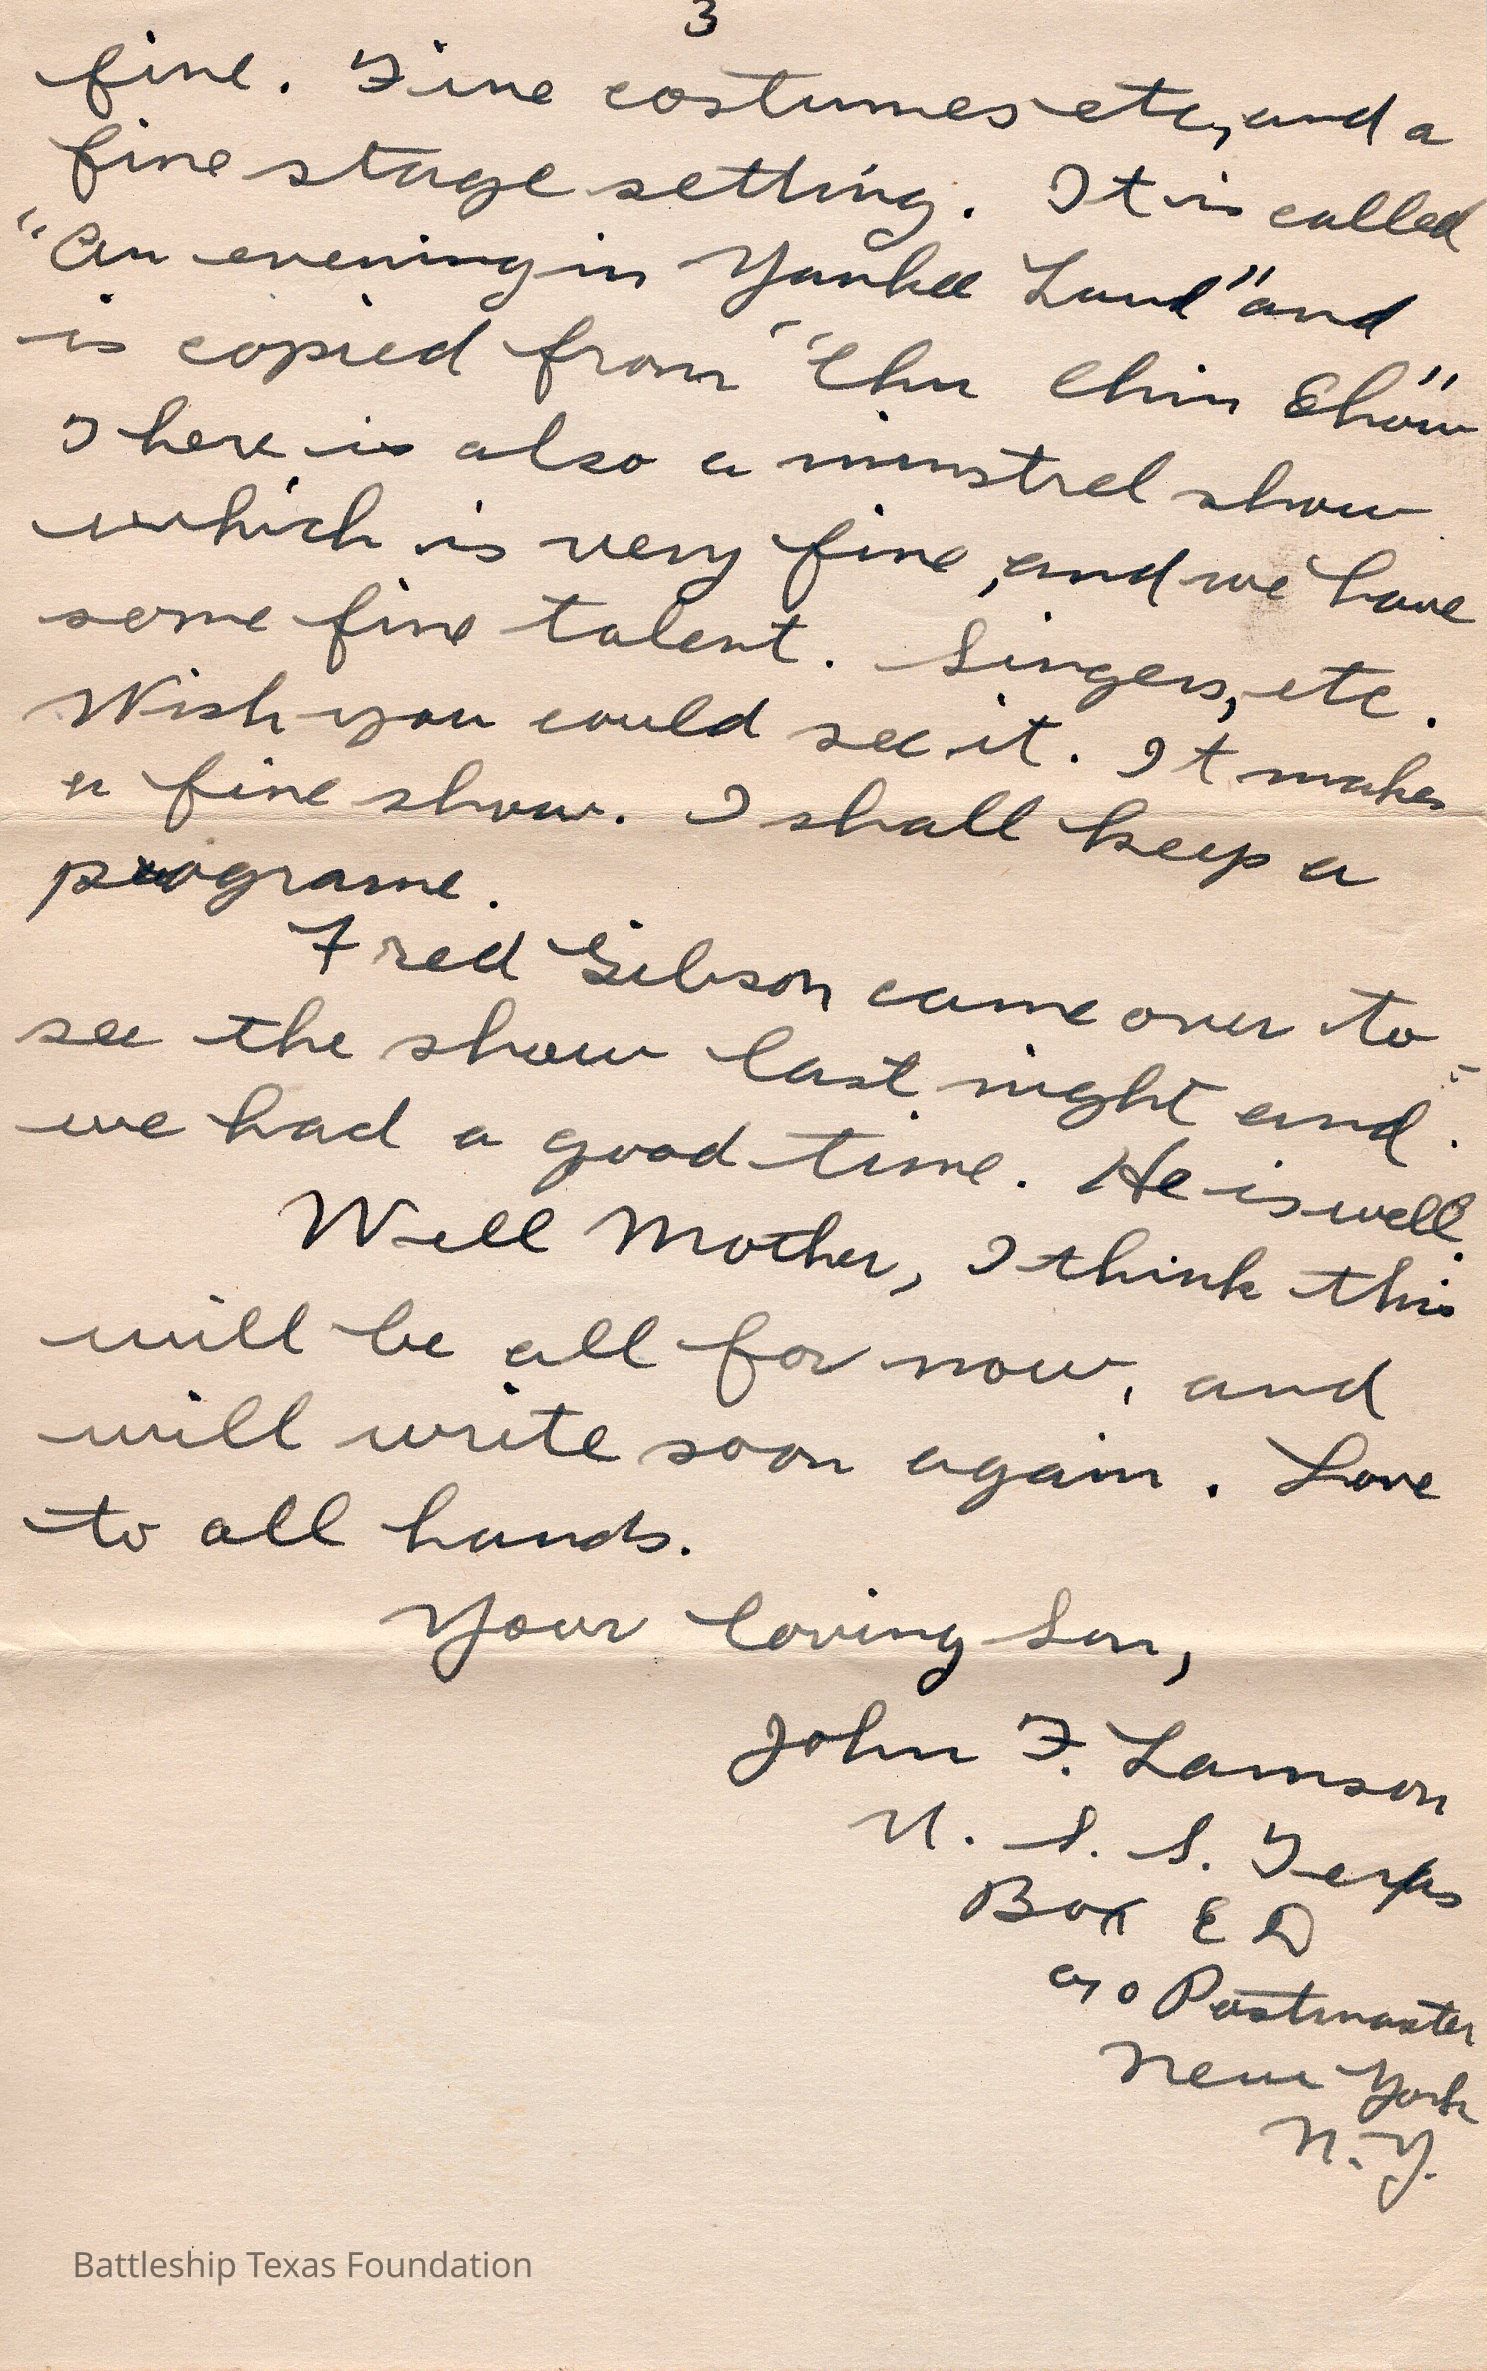 3
fine. Fine costumes etc, and a
fine stage setting. It is called
"An evening in Yankee Land" and
is copied from "Chu Chin Chow"
There is also a minstrel show
which is very fine, and we have
some fine talent. Singers, etc.
Wish you could see it. It makes
a fine show. I shall keep a
programe.
Fred Gibson came over to
see the show last night and
we had a good time. He is well.
Well Mother, I think this
will be all for now, and
will write soon again. Love
to all hands.
Your loving Son,
John F. Lamson
U. S. S. Texas
Box E D
c/o Postmaster
New York
N.Y.
Battleship Texas Foundation